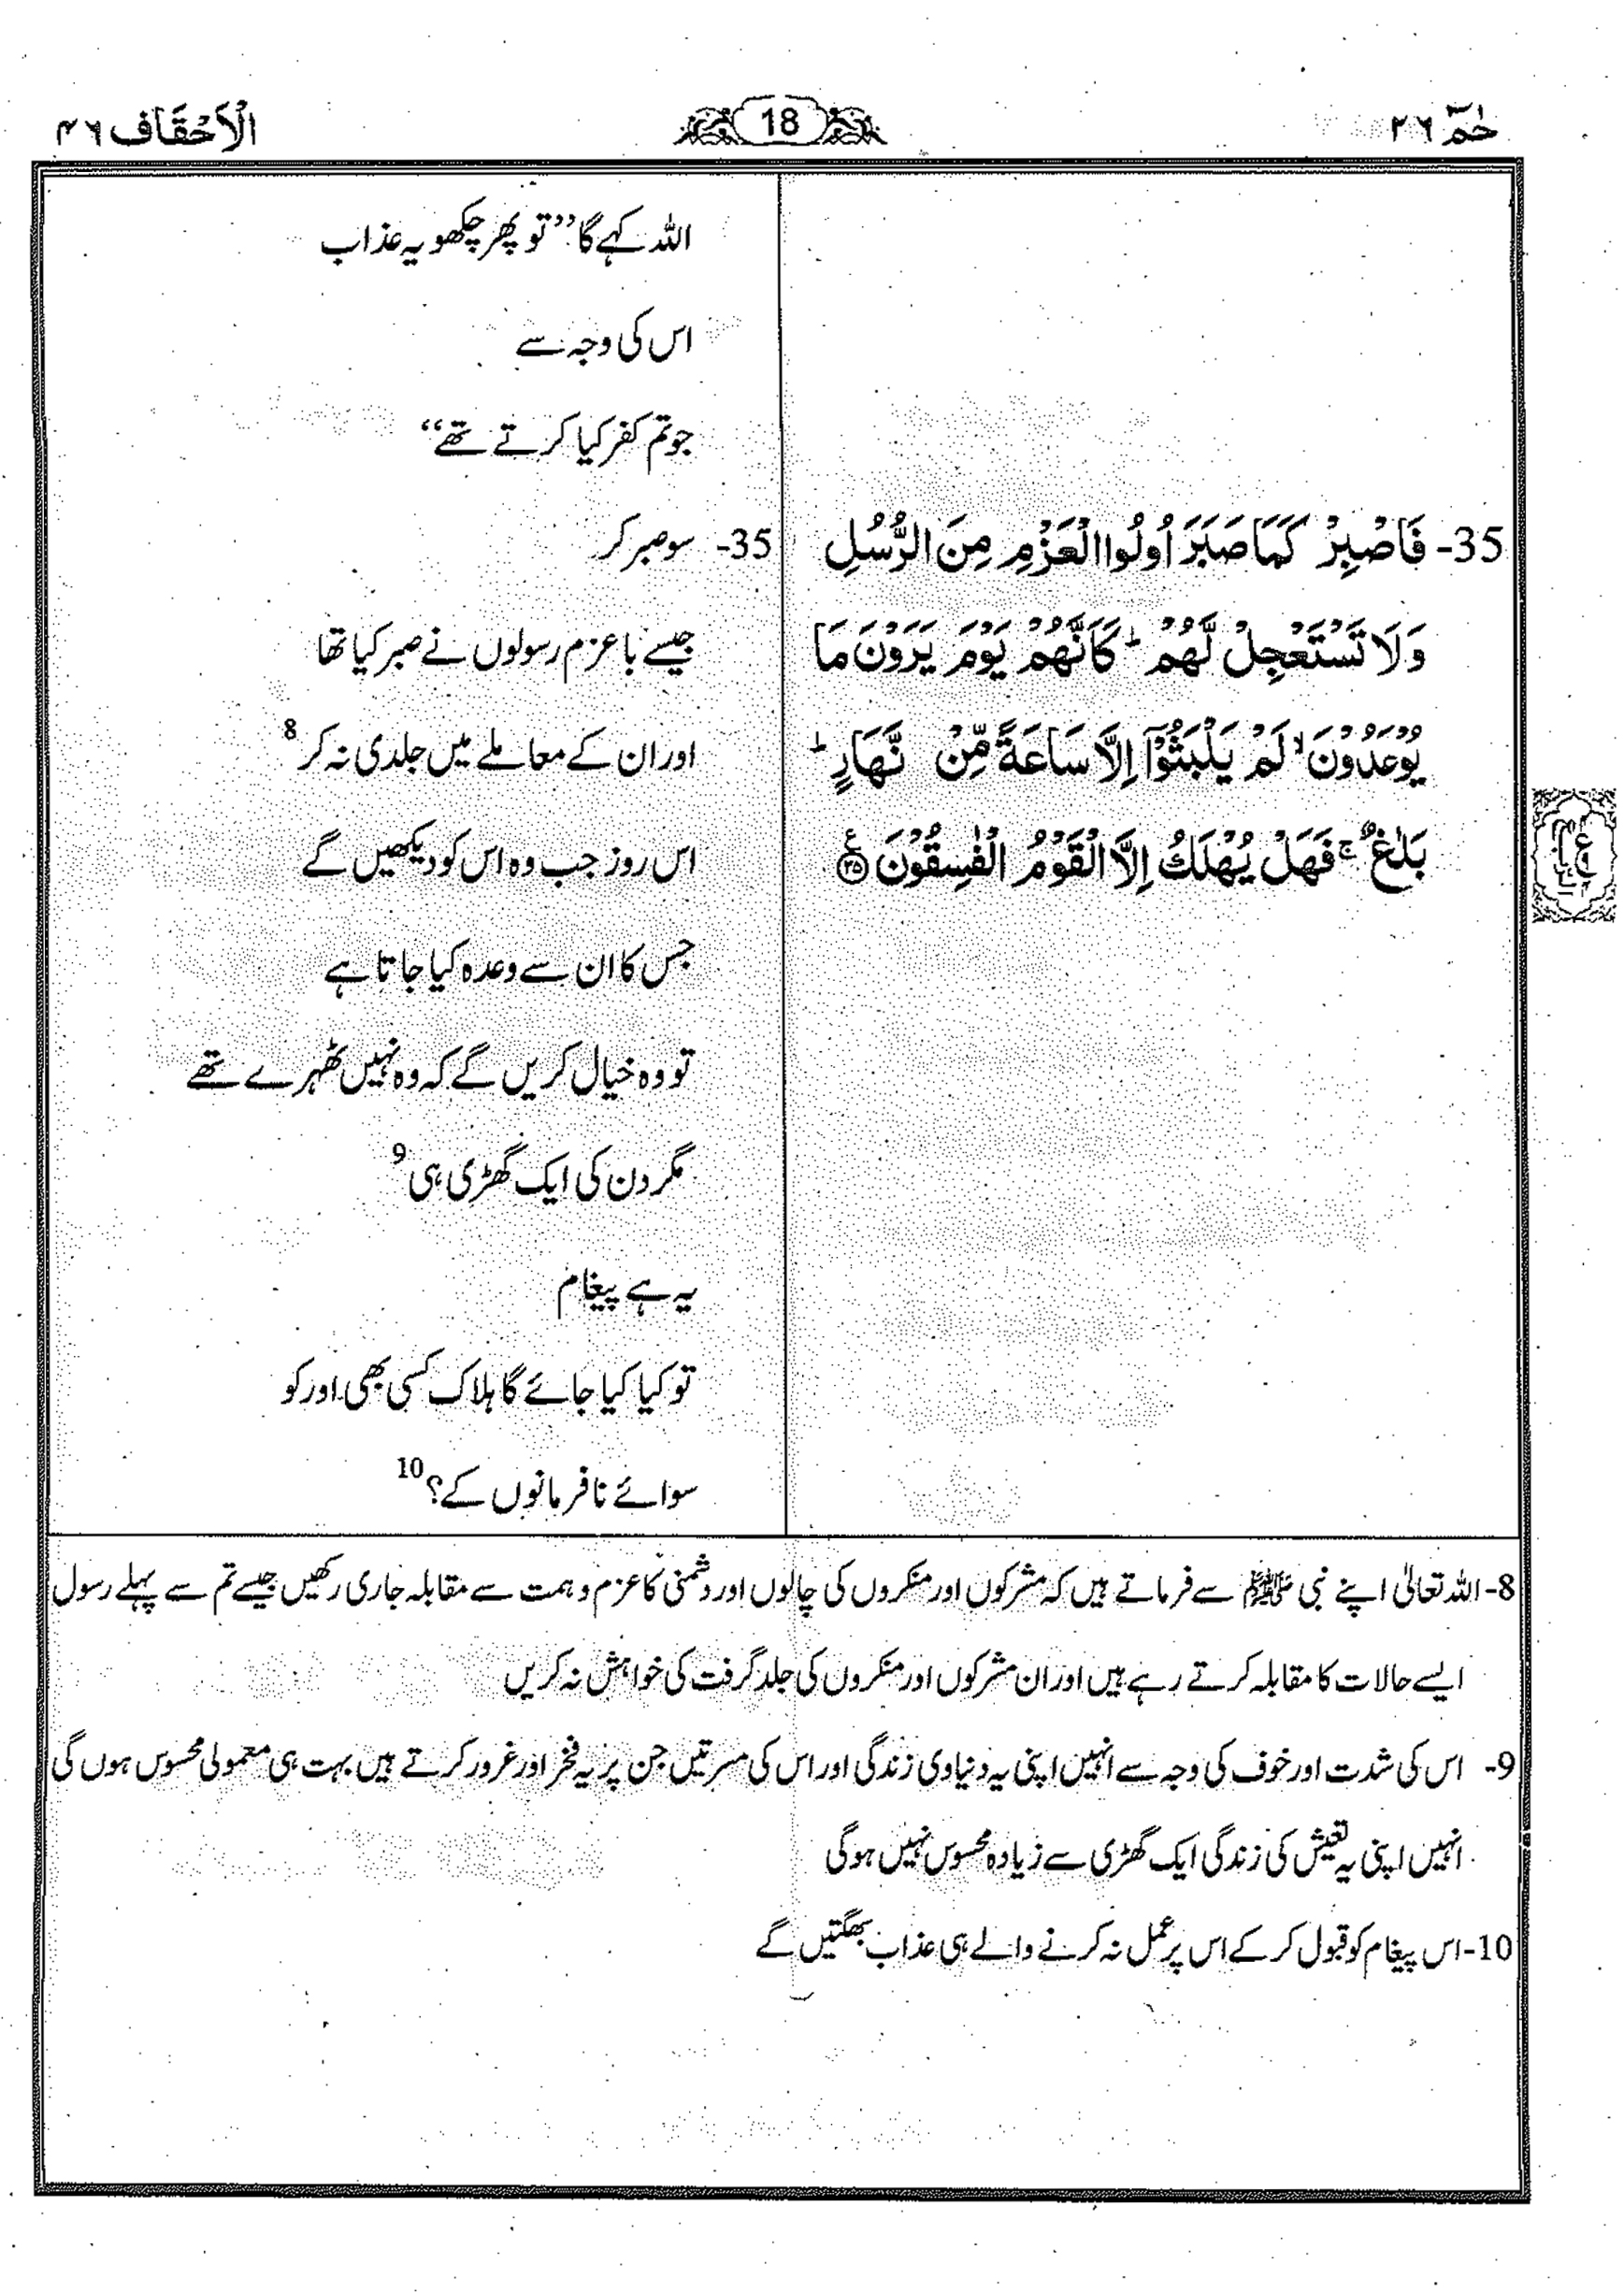 حٰمٓ ٢٦
18
الْاَحْقَاف ٤٦
35- فَاصْبِرْ كَمَا صَبَرَ اُولُوا الْعَزْمِ مِنَ الرُّسُلِ
وَلَا تَسْتَعْجِلْ لَّهُمْ ؕ كَاَنَّهُمْ يَوْمَ يَرَوْنَ مَا
يُوْعَدُوْنَ ۙ لَمْ يَلْبَثُوْٓا اِلَّا سَاعَةً مِّنْ نَّهَارٍ ؕ
بَلٰغٌ ۚ فَهَلْ يُهْلَكُ اِلَّا الْقَوْمُ الْفٰسِقُوْنَ ﴿۳۵﴾ ع
اللہ کہے گا ”تو پھر چکھو یہ عذاب
اس کی وجہ سے
جو تم کفر کیا کرتے تھے“
35- سو صبر کر
جیسے باعزم رسولوں نے صبر کیا تھا
اور ان کے معاملے میں جلدی نہ کر 8
اس روز جب وہ اس کو دیکھیں گے
جس کا ان سے وعدہ کیا جاتا ہے
تو وہ خیال کریں گے کہ وہ نہیں ٹھہرے تھے
مگر دن کی ایک گھڑی ہی 9
یہ ہے پیغام
تو کیا کیا جائے گا ہلاک کسی بھی اور کو
سوائے نافرمانوں کے؟ 10
8- اللہ تعالیٰ اپنے نبی ﷺ سے فرماتے ہیں کہ مشرکوں اور منکروں کی چالوں اور دشمنی کا عزم و ہمت سے مقابلہ جاری رکھیں جیسے تم سے پہلے رسول
ایسے حالات کا مقابلہ کرتے رہے ہیں اور ان مشرکوں اور منکروں کی جلد گرفت کی خواہش نہ کریں
9- اس کی شدت اور خوف کی وجہ سے انہیں اپنی یہ دنیاوی زندگی اور اس کی مسرتیں جن پر یہ فخر اور غرور کرتے ہیں بہت ہی معمولی محسوس ہوں گی
انہیں اپنی یہ تعیش کی زندگی ایک گھڑی سے زیادہ محسوس نہیں ہوگی
10- اس پیغام کو قبول کر کے اس پر عمل نہ کرنے والے ہی عذاب بھگتیں گے